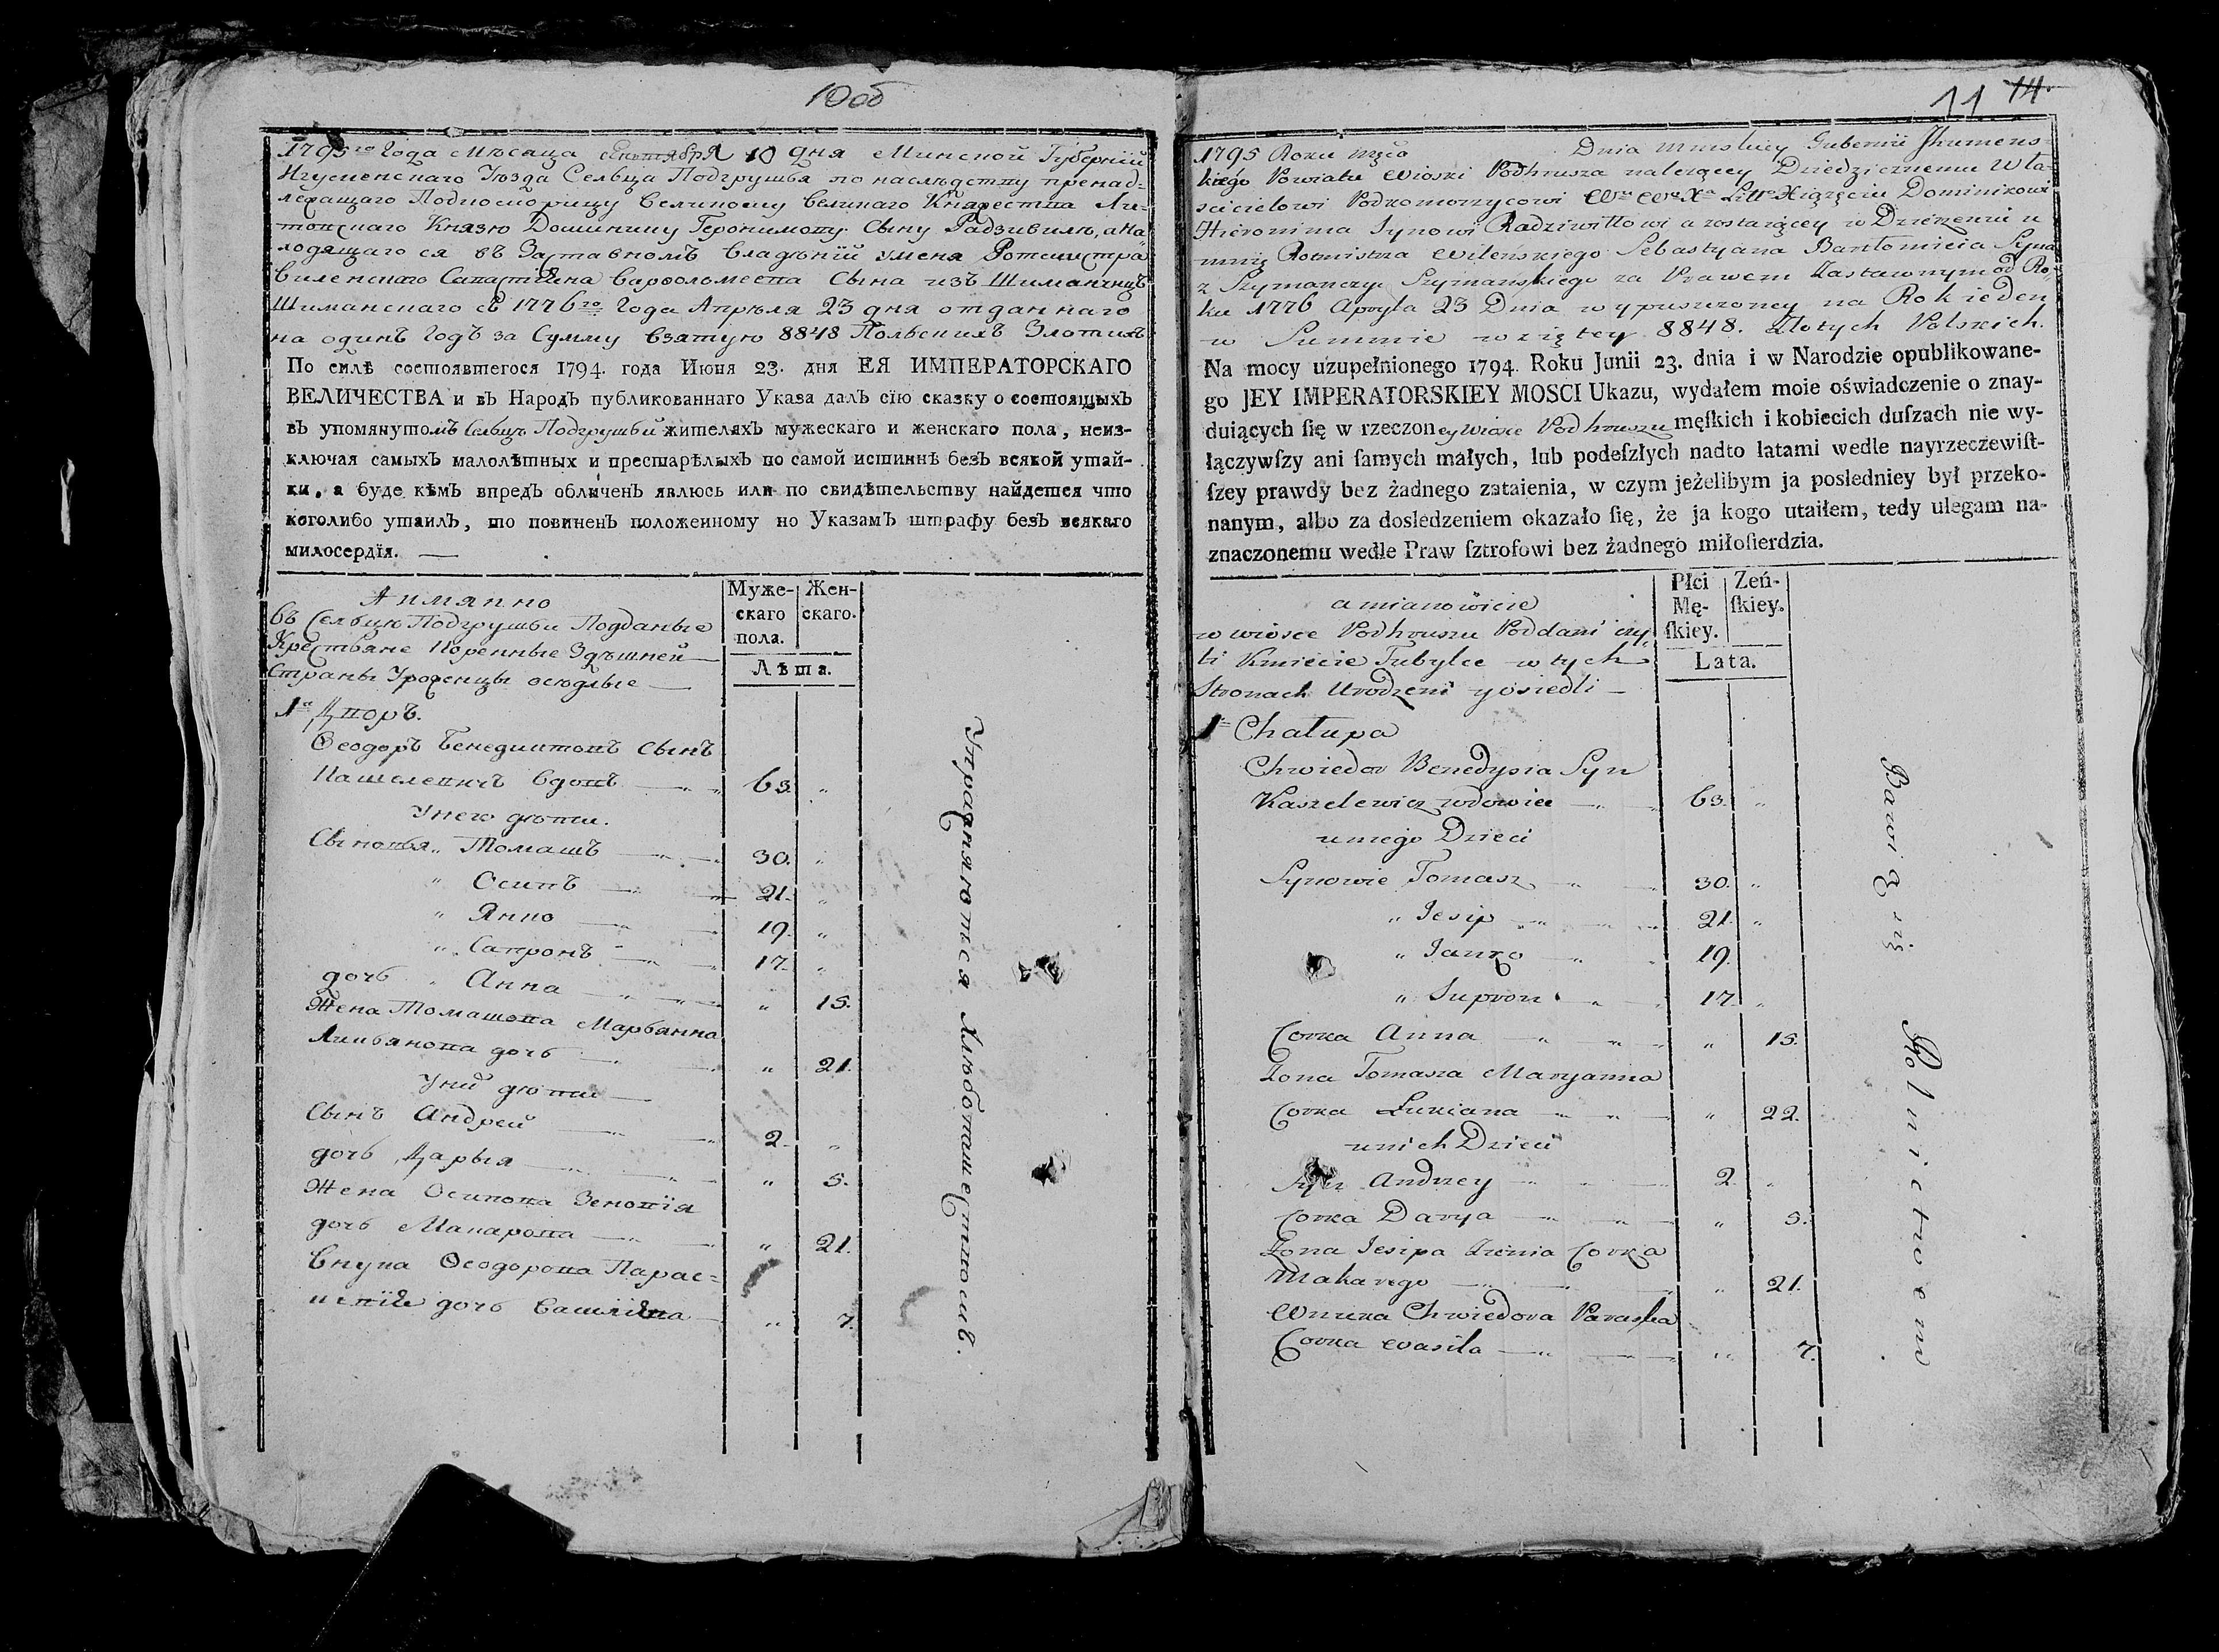 10об
1795го Года Мѣсаца Сентября 10 дня Минской Губерніи
Игуменскаго Уѣзда Сельца Подгрушья по наслѣдству пренад=
лежащаго Подкоморицу Великому Великаго Княжества Ли=
товскаго Князю Доминику Геронимову Сыну Радзивилю, а на=
ходящаго ся въ Заставномъ Владѣніи у меня Ротмистра
Виленскаго Сапастіяна Варфоломеева Сына изъ Шиманчицъ
Шиманскаго съ 1776го Года Апрѣля 23 дня отданнаго
на одинъ Годъ за Сумму взятую 8848 Польскихъ Злотихъ
По силѣ состоявшегося 1794. года Июня 23. дня ЕЯ ИМПЕРАТОРСКАГО
ВЕЛИЧЕСТВА и въ Народъ публикованнаго Указа далъ сїю сказку о состоящыхъ
въ упомянутомъ Сельцѣ Подгрушьи жителяхъ мужескаго и женскаго пола, неиз-
ключая самыхъ малолѣтных и престарѣлыхъ по самой истиннѣ безъ всякой утай-
ки, а буде кѣмъ впредъ обличенъ явлюсь или по свидѣтельству найдется что
коголибо утаилъ, то повиненъ положенному по Указамъ штрафу безъ всякаго
милосердїя.
Аимянно
въ Сельцѣ Подгрушьи Подданые
Крестьяне Коренные Здѣшней
Страны Уроженцы осѣдлые
Муже-
скаго
пола.
Жен-
скаго.
Лѣта.
1й Дворъ.
Ѳеодоръ Бенедиктовъ Сынъ
Кашелевичъ Вдовъ 63. „
У него дѣти.
Сыновья „ Томашъ 30. „
„ Осипъ 21. „
„ Янко 19. „
„ Сапронъ 17. „
дочь „ Анна „ 15.
Жена Томашова Марьянна
Лукьянова дочь „ 21.
У них дѣти
Сынъ Андрей 2. „
дочь Дарья „ 5.
Жена Осипова Зеновія
дочь Макарова „ 21.
Внука Ѳеодорова Парас=
кевія дочь Василіева „ 7.
Упражняются хлѣбопашествомъ.
11 14.
1795 Roku Mscа Dnia Minskiey Gubernii Jhumens=
kiego Powiatu Wioski Podhrusza należącey Dziedzicznemu Wła-
scicielowi Podkomorzycowi Wu Wo Xa Litto Xiążęciu Dominikowi
Hieronima Synowi Radziwiłłowi a zostaiącey w Dzierzeniu u
mnie Rotmistrza Wileńskiego Sebastyana Bartłomieia Syna
z Szymanczyc Szymańskiego za Prawem Zastawnym od Ro-
ku 1776 Apryla 23 Dnia wypuszczoney na Rok ieden
w Summie wziętey 8848. Złotych Polskich.
Na mocy uzupełnionego 1794. Roku Junii 23. dnia i w Narodzie opublikowane-
go JEY IMPERATORSKIEY MOSCI Ukazu, wydałem moie oświadczenie o znay-
duiących ſię w rzeczoney Wiosce Podhruszu męſkich i kobiecich duſzach nie wy-
łączywſzy ani ſamych małych, lub podeſzłych nadto latami wedle nayrzeczewiſt-
ſzey prawdy bez żadnego zataienia, w czym jeżelibym ja posledniey był przeko-
nanym, albo za dosledzeniem okazało ſię, że ja kogo utaiłem, tedy ulegam na-
znaczonemu wedle Praw ſztrofowi bez żadnego miłoſierdzia.
a mianowicie
w wiosce Podhruszu Poddani czy-
li Kmiecie Tubylce w tych
Stronach Urodzeni y osiedli
Płci
Mę-
ſkiey.
Zeń-
ſkiey.
Lata.
1a Chałupa
Chwiedor Benedysia Syn
Kaszelewicz wdowiec 63. „
u niego Dzieci
Synowie Tomasz 30. „
„ Jesip 21. „
„ Janko 19.
„ Supron 17. „
Corka Anna „ 15.
Zona Tomasza Maryanna
Corka Łukiana „ 22.
u nich Dzieci
Syn Andrzey 2. „
Corka Darya „ 5.
Zona Jesipa Zienia Corka
Makarego „ 21.
Wnuka Chwiedora Paraska
Corka Wasila „ 7.
Bawi Się Rolnictwem